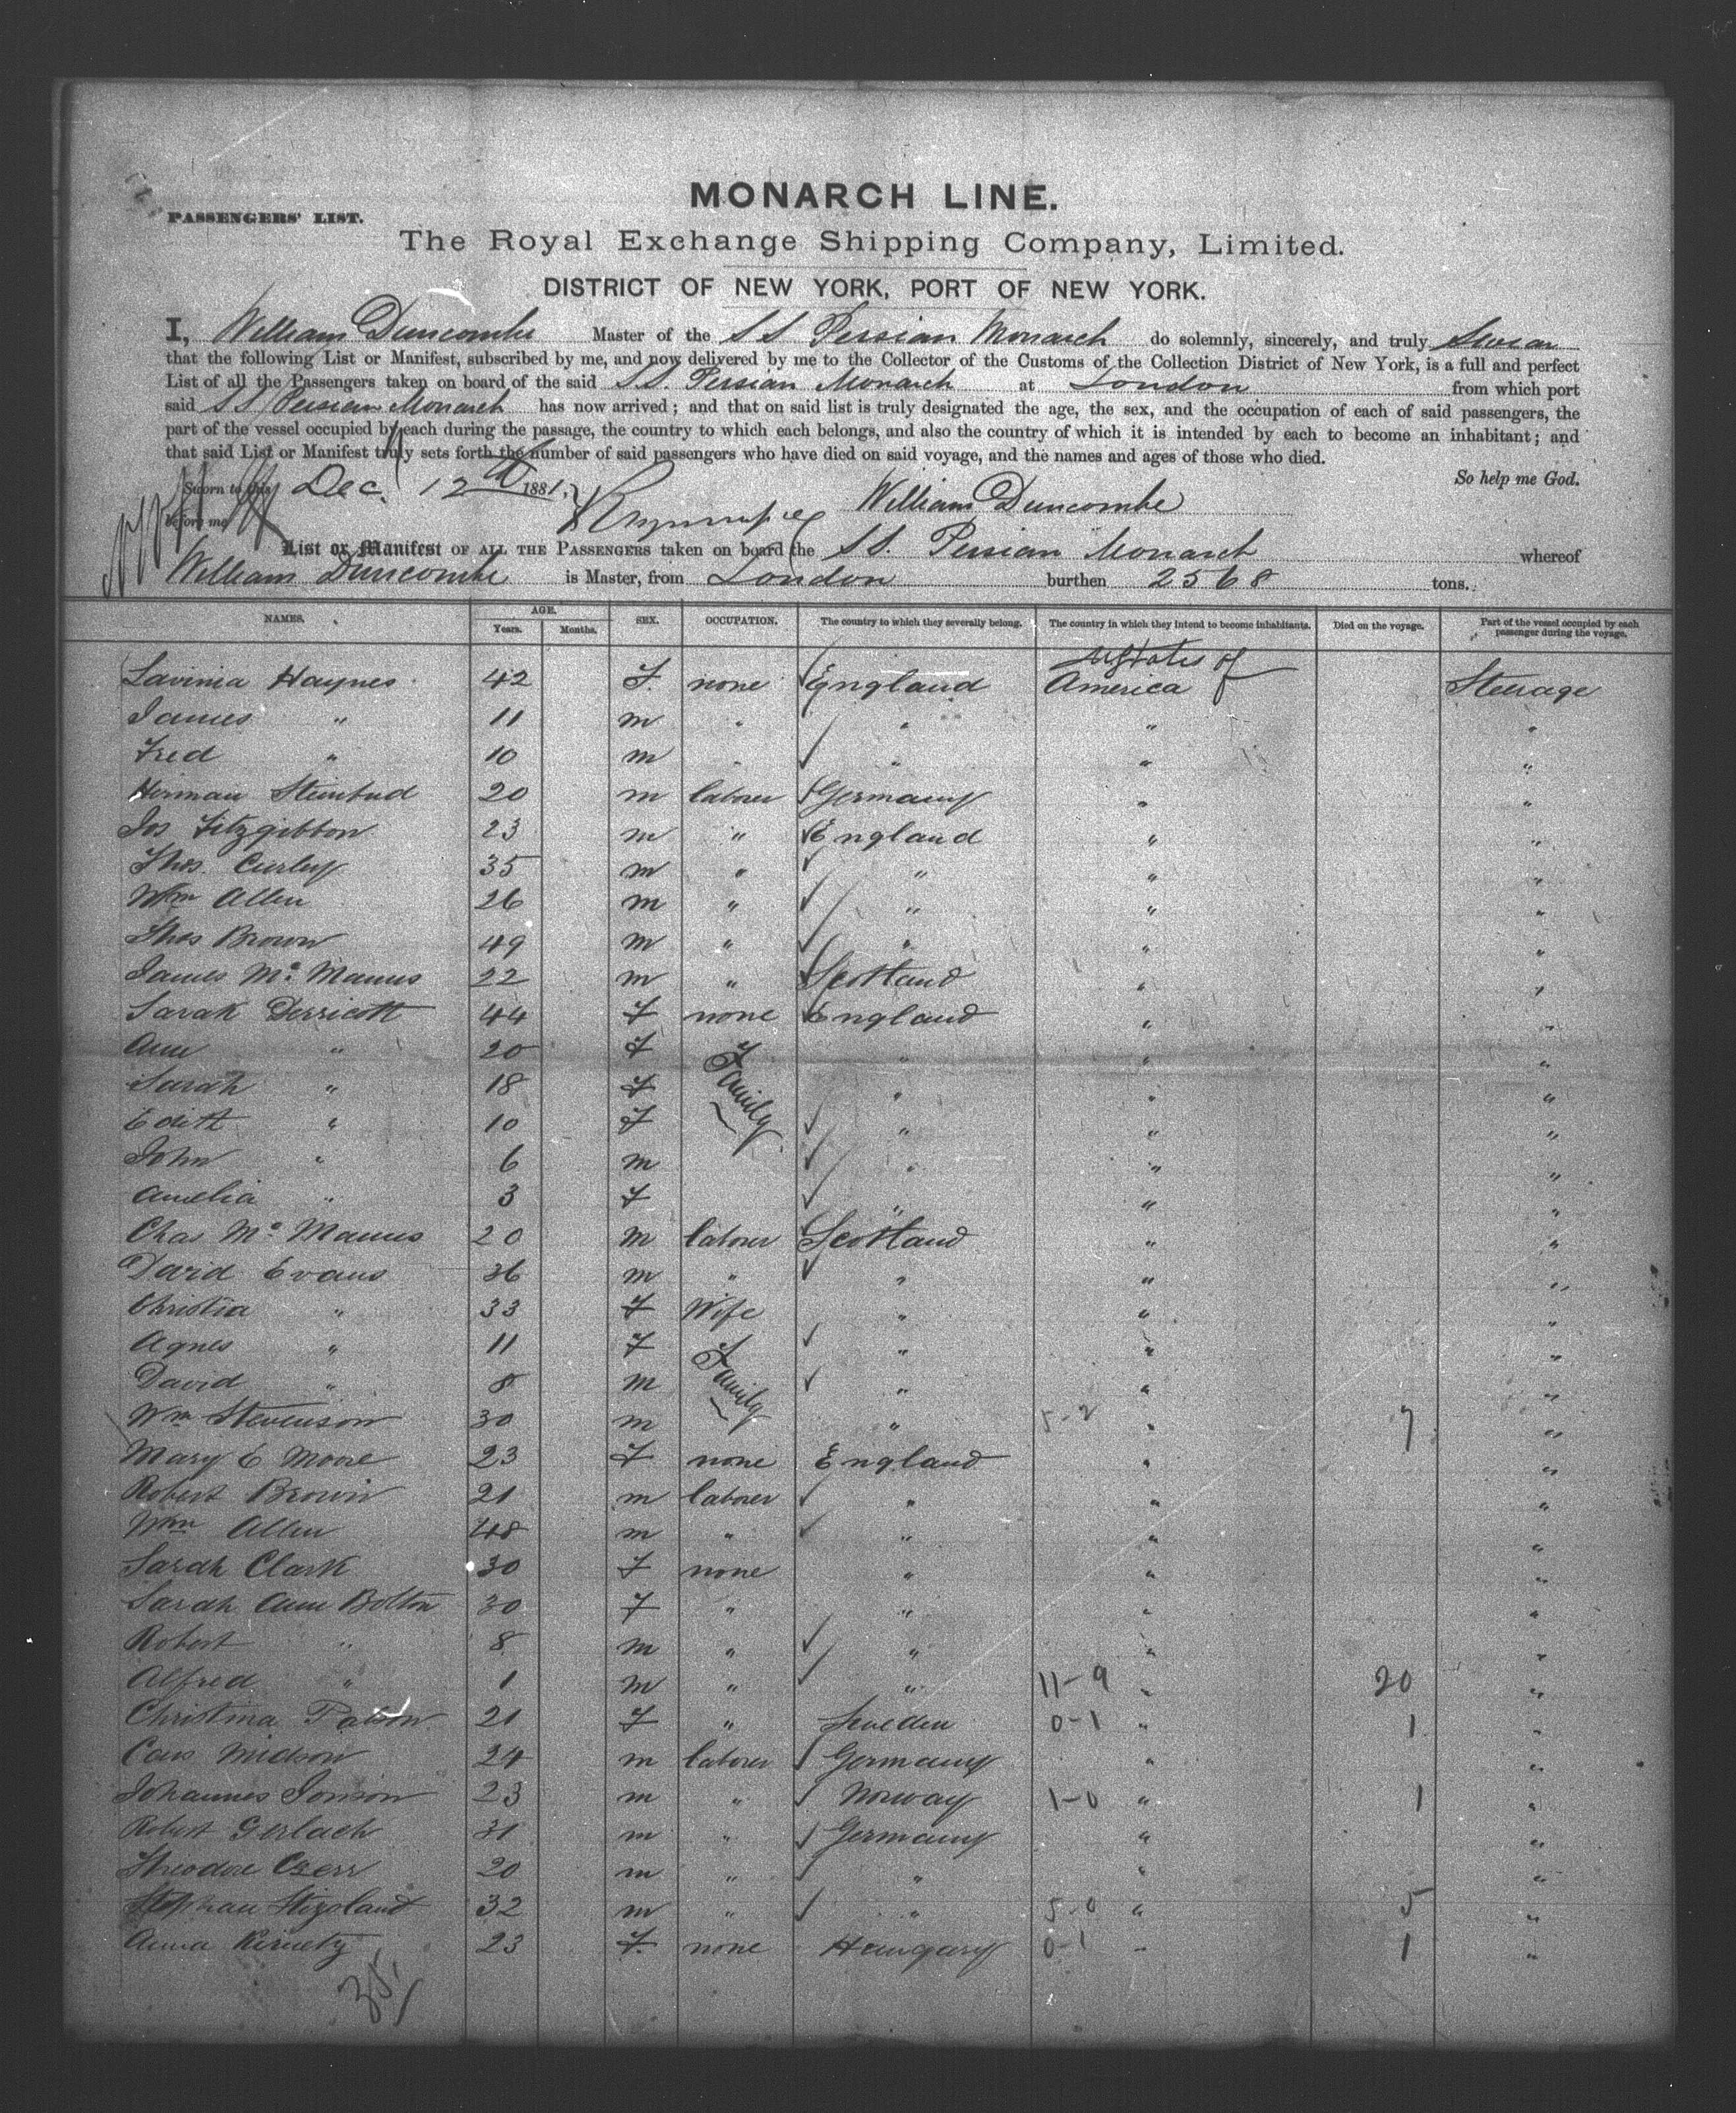 MONARCH LINE.
PASSENGERS' LIST.
The Royal Exchange Shipping Company, Limited.
DISTRICT OF NEW YORK, PORT OF NEW YORK.
I, William Duncombe Master of the S S Persian Monarch do solemnly, sincerely, and truly Swear
that the following List or Manifest, subscribed by me, and now delivered by me to the Collector of the Customs of the Collection District of New York, is a full and perfect
List of all the Passengers taken on board of the said S.S. Persian Monarch at London from which port
said S S Persian Monarch has now arrived; and that on said list is truly designated the age, the sex, and the occupation of each of said passengers, the
part of the vessel occupied by each during the passage, the country to which each belongs, and also the country of which it is intended by each to become an inhabitant; and
that said List or Manifest truly sets forth the number of said passengers who have died on said voyage, and the names and ages of those who died.
So help me God.
Sworn to this Dec. 12th 1881,
before me William Duncombe
List or Manifest OF ALL THE PASSENGERS taken on board the S S. Persian Monarch whereof
William Duncombe is Master, from London burthen 2568 tons.
NAMES. AGE. Years. Months. SEX. OCCUPATION. The country to which they severally belong. The country in which they intend to become inhabitants. Died on the voyage. Part of the vessel occupied by each passenger during the voyage.
Lavinia Haynes 42 F. none England UStates of America Steerage
James " 11 m " " " "
Fred " 10 m " " " "
Herman 20 m laborer Germany " "
Jos Fitzgibbon 23 m " England " "
Thos. Curley 35 m " " " "
Wm Allen 26 m " " " "
Thos Brown 49 m " " " "
James Mc Manus 22 m " Scotland " "
Sarah Derricott 44 F none England " "
Ann " 20 F Family " " "
Sarah " 18 F " " "
Edith " 10 F " " "
John " 6 m " " "
Amelia " 3 F " " "
Chas Mc Manus 20 m laborer Scotland " "
David Evans 36 m " " " "
Christia " 33 F Wife " " "
Agnes " 11 F Family " " "
David " 8 m " " "
Wm Stevenson 30 m " 5-2 " 7 "
Mary E Moore 23 F none England " "
Robert Brown 21 m laborer " " "
Wm Allen 48 m " " " "
Sarah Clark 30 F none " " "
Sarah Ann Bolton 30 F " " " "
Robert " 8 m " " " "
Alfred " 1 m " " 11-9 " 20 "
Christina 21 F " Sweden 0-1 " 1 "
24 m laborer Germany " "
Johannes Jonson 23 m " Norway 1-0 " 1 "
Robert Gerlach 31 m " Germany " "
Theodore 20 m " " " "
32 m " " 5-0 " 5 "
Anna 23 F. none Hungary 0-1 " 1 "
35